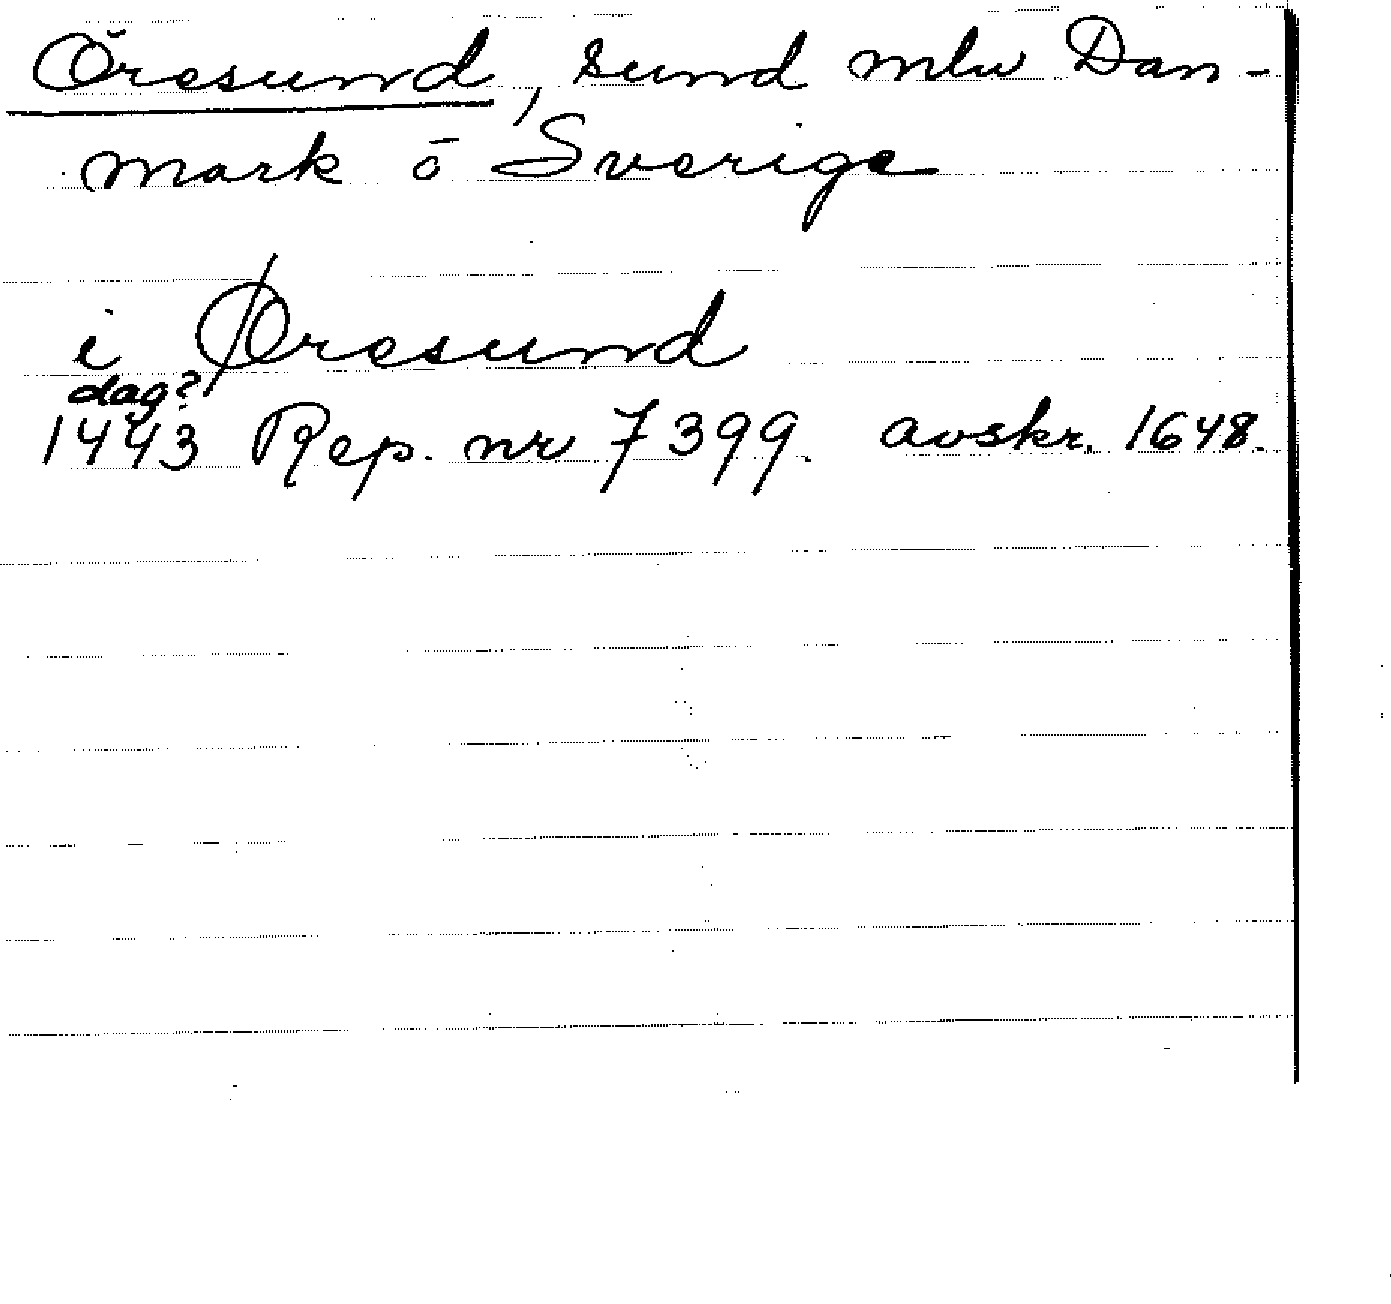 Öresund, sund mlw Dan-
mark ō Sverige
i Øresund
dag?
1443 Rep. nr 7399. avskr. 1648.